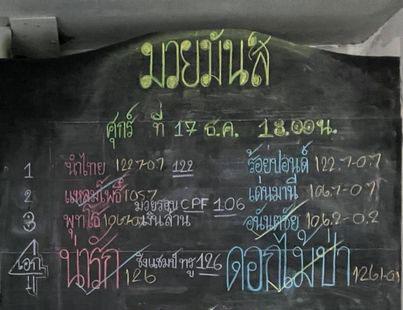 มวยมันส์
ศุกร์ ที่ 17 ธ.ค. 18.00น.
1 นำไทย 122.7-0.7 122 ร้อยปอนด์ 122.7-0.7
2 แหลมโพธิ์ 105.7 เดนมานี 106.7-0.7
มวยรอบ CPF 106
3 พุทโธ 106.2 เงินล้าน อนันตชัย 106.2-0.2
4 เอก น่ารัก 126 ชิงแชมป์ ทรู 126 ดอกไม้ป่า 126